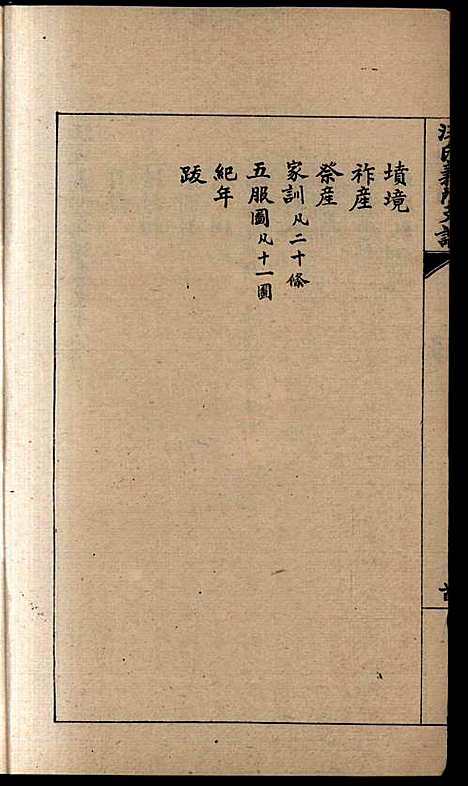 墳境
祚產
祭產
家訓凡二十條
五服圖凡十一圖
紀年
跋